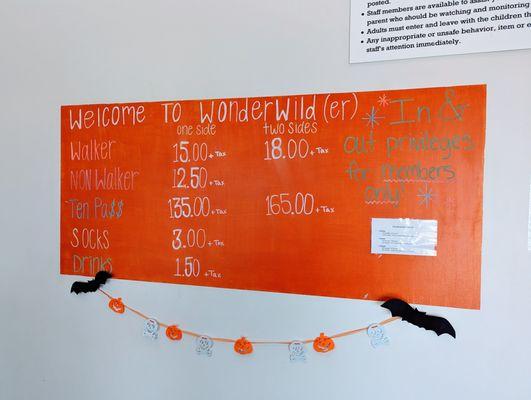 posted.
• Staff members are available to assist
parent who should be watching and monitoring
• Adults must enter and leave with the children th
• Any inappropriate or unsafe behavior, item or e
staff's attention immediately.
Welcome To WonderWild(er)
one side two sides
Walker 15.00 + Tax 18.00 + Tax
NON Walker 12.50 + Tax
Ten Pa$$ 135.00 + Tax 165.00 + Tax
SOCKS 3.00 + Tax
Drinks 1.50 + Tax
In &
out privileges
for members
only!